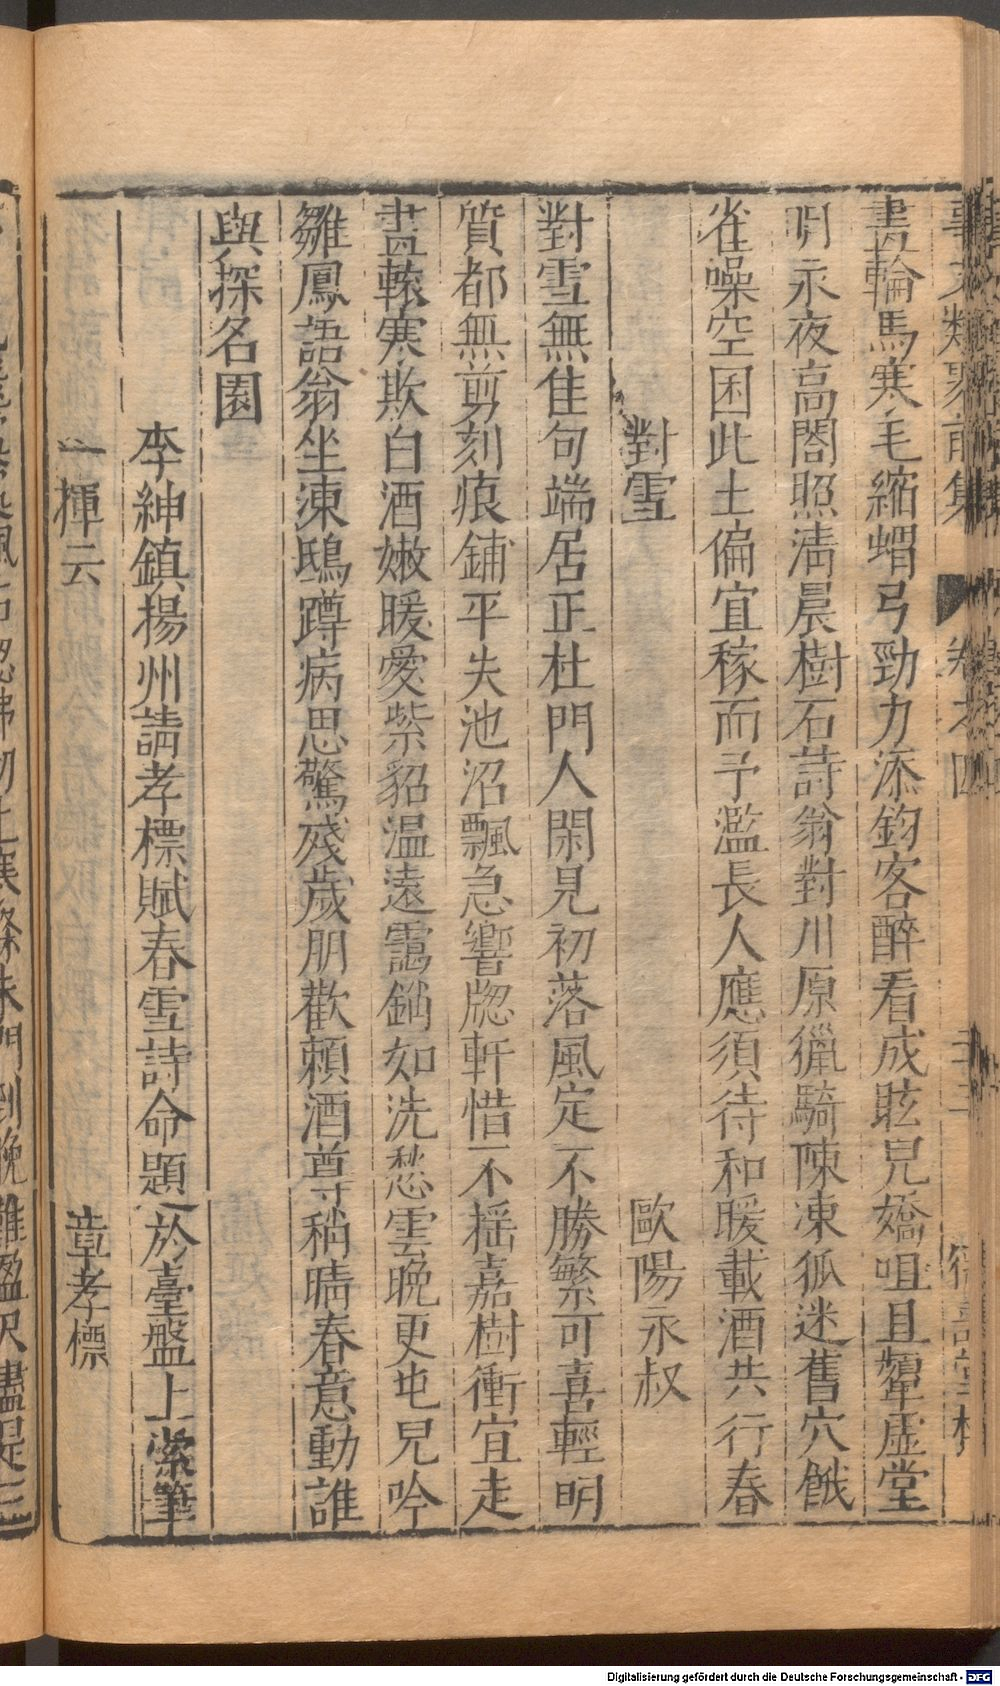 事文類聚前集 卷之四 德壽堂梓
畫輪馬寒毛縮蝟弓勁力添鈞客醉看成眩兒嬌咀且顰虛堂
明永夜高閣照清晨樹石詩翁對川原獵騎陳凍狐迷舊穴餓
雀噪空囷此土偏宜稼而予濫長人應須待和暖載酒共行春
對雪 歐陽永叔
對雪無佳句端居正杜門人閑見初落風定不勝繁可喜輕明
質都無剪刻痕鋪平失池沼飄急響牕軒惜不揺嘉樹衝宜走
畫轅寒欺白酒嫩暖愛紫貂温遠靄銷如洗愁雲晚更屯兒吟
雛鳳語翁坐凍鴟蹲病思驚殘歲朋歡頼酒尊稍晴春意動誰
與探名園
李紳鎮揚州請孝標賦春雪詩命題之於臺盤上索筆
一揮云 章孝標
Digitalisierung gefördert durch die Deutsche Forschungsgemeinschaft - DFG